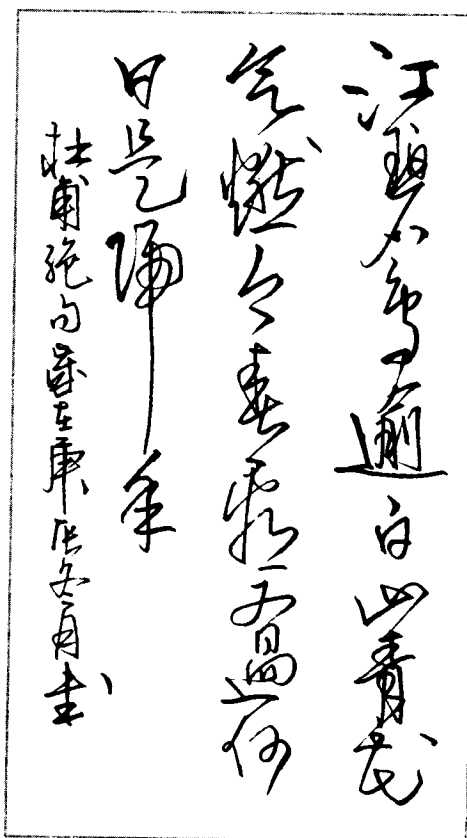 江碧鳥逾白山青花
欲燃今春看又過何
日是歸年
杜甫絕句歲在庚辰冬月書